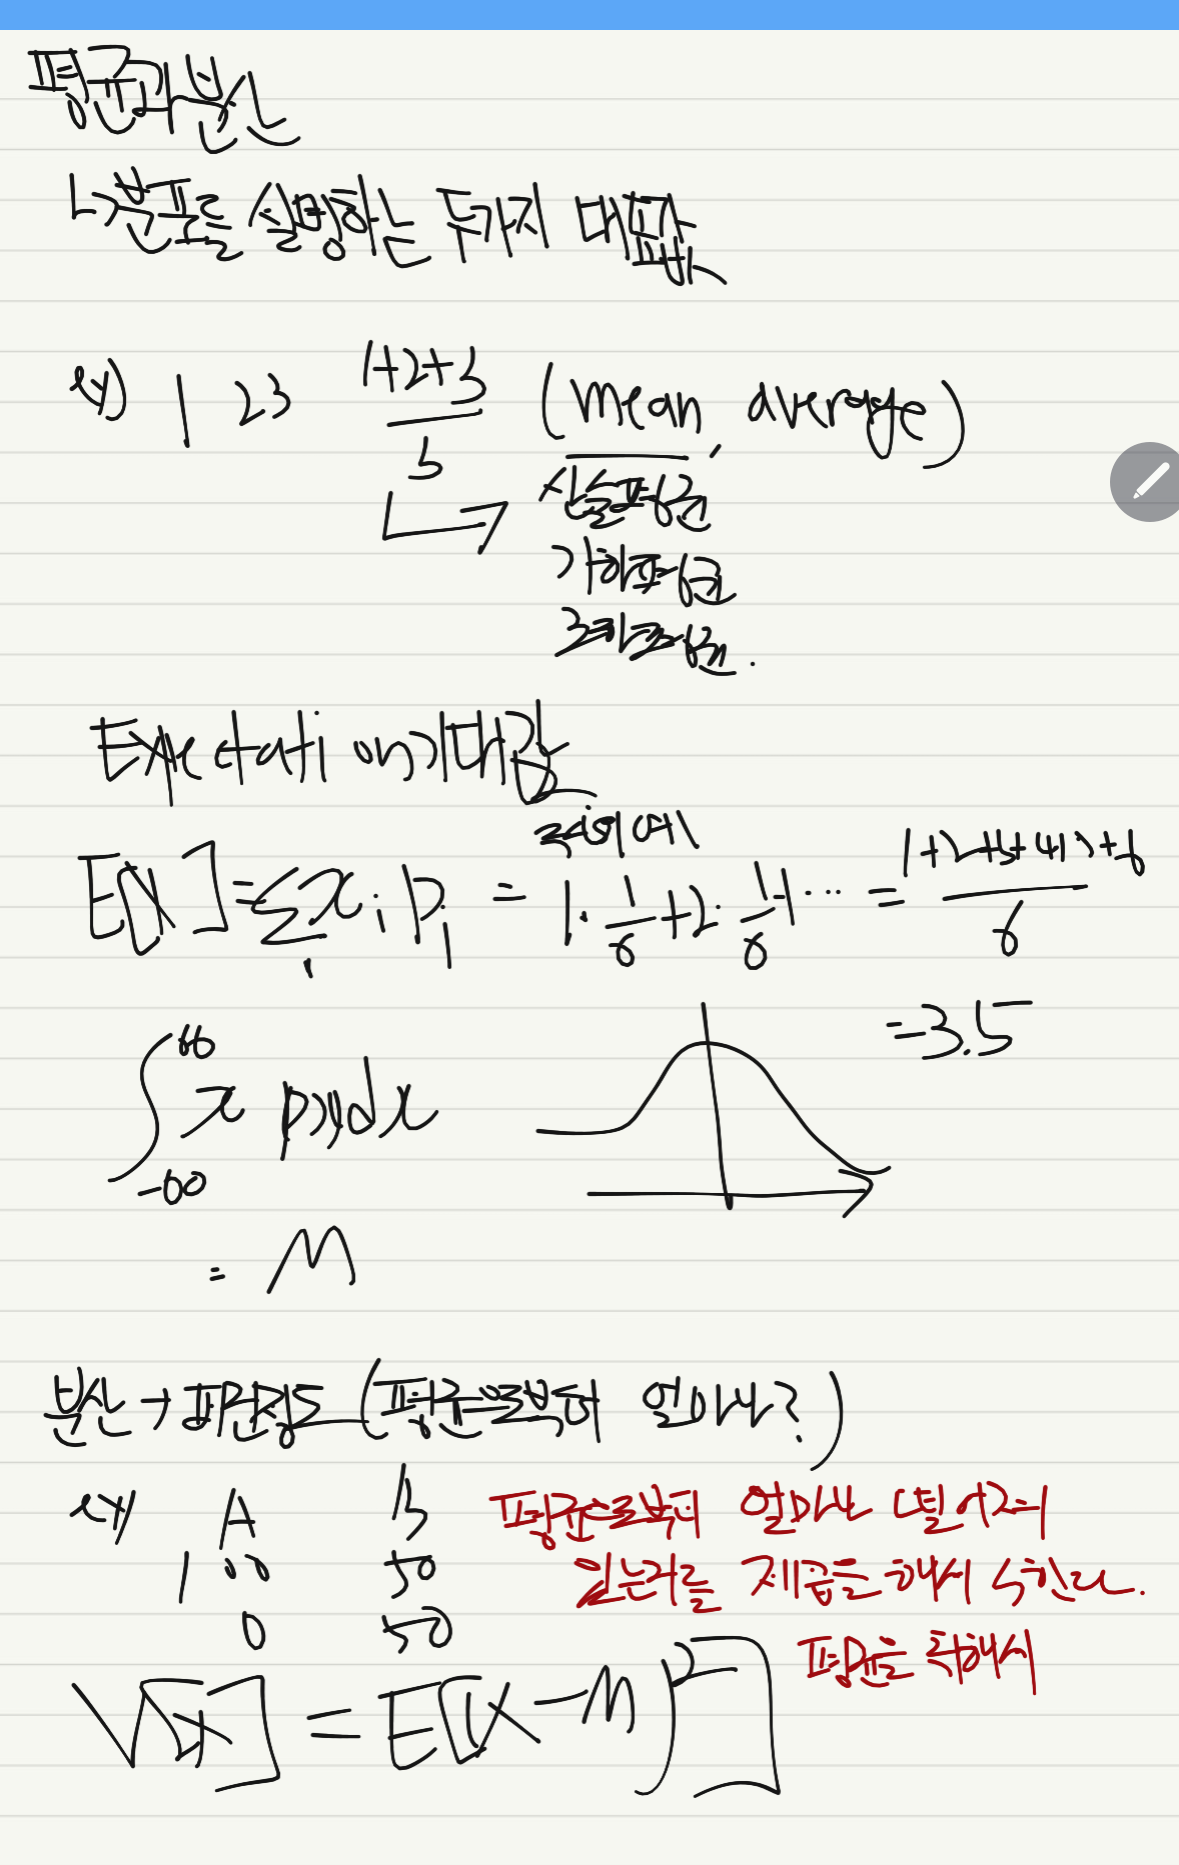 평균과 분산
ㄴ> 분포를 설명하는 두가지 대표값
ex) 1 2 3 (1+2+3)/3 (mean, average)
산술평균
기하평균
조화평균.
Expectation 기대값
주사위에서
E[X] = Σ_i x_i P_i = 1·1/6 + 2·1/6 + ··· = (1+2+3+4+5+6)/6
= 3.5
∫_{-∞}^{∞} x p(x)dx
= M
분산 → 퍼진정도 (평균으로부터 얼마나?)
ex) A B
100 50
0 50
평균으로부터 얼마나 떨어져
있는지를 제곱을 해서 구한다.
평균을 취해서
V[X] = E[(X-M)²]